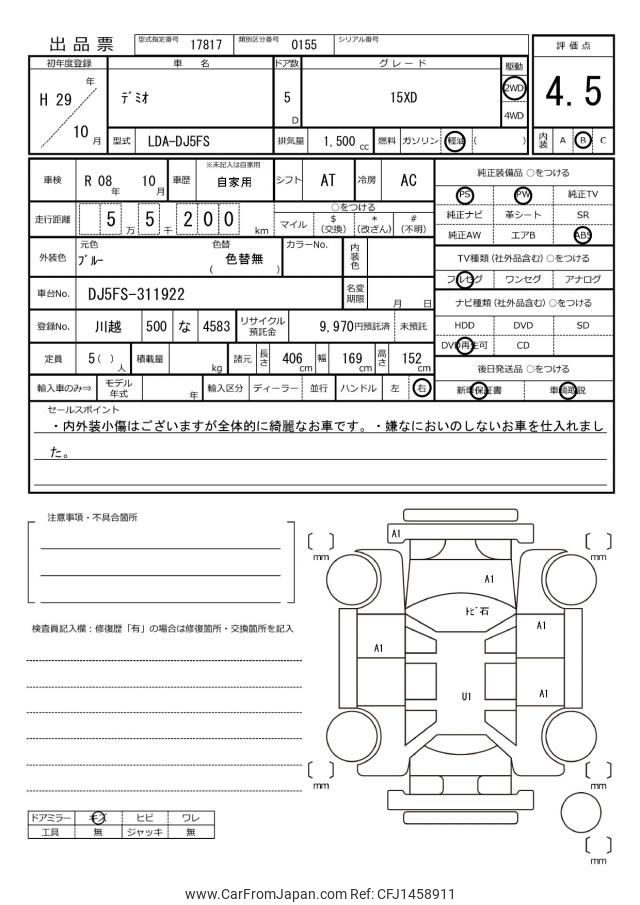 出品票 型式指定番号 17817 類別区分番号 0155 シリアル番号 評価点
初年度登録 車名 ドア数 グレード 駆動
H 29 年 ﾃﾞﾐｵ 5 D 15XD 2WD 4.5
4WD
10 月 型式 LDA-DJ5FS 排気量 1,500 cc 燃料 ガソリン 軽油 ( ) 内装 A B C
車検 R 08 年 10 月 車歴 ※未記入は自家用 自家用 シフト AT 冷房 AC 純正装備品 ○をつける
PS PW 純正TV
走行距離 5 万 5 千 2 0 0 km ○をつける
マイル $ (交換) * (改ざん) # (不明)
純正ナビ 革シート SR
純正AW エアB ABS
外装色 元色 ﾌﾞﾙｰ 色替 ( 色替無 ) カラーNo. 内装色 TV種類 (社外品含む) ○をつける
フルセグ ワンセグ アナログ
車台No. DJ5FS-311922 名変期限 月 日 ナビ種類 (社外品含む) ○をつける
登録No. 川越 500 な 4583 リサイクル預託金 9,970円預託済 未預託 HDD DVD SD
DVD再生可 CD
定員 5 ( ) 人 積載量 kg 諸元 長さ 406 cm 幅 169 cm 高さ 152 cm 後日発送品 ○をつける
輸入車のみ⇒ モデル年式 年 輸入区分 ディーラー 並行 ハンドル 左 右 新車保証書 車輌取説
セールスポイント
・内外装小傷はございますが全体的に綺麗なお車です。・嫌なにおいのしないお車を仕入れまし
た。
注意事項・不具合箇所
検査員記入欄：修復歴「有」の場合は修復箇所・交換箇所を記入
A1
mm mm
A1
ﾄﾋﾞ石
A1
A1
A1
U1
mm mm
mm
ドアミラー キズ ヒビ ワレ
工具 無 ジャッキ 無
www.CarFromJapan.com Ref: CFJ1458911